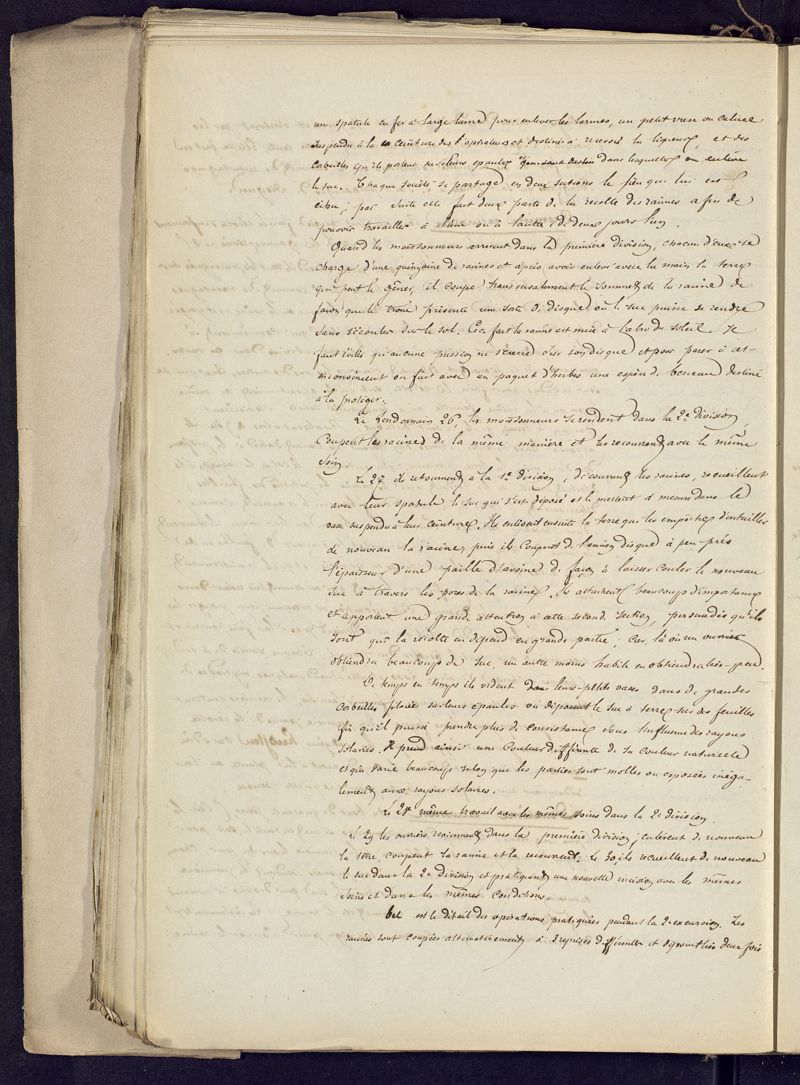 un spatule en fer à large lame pour enlever les larmes, un petit vase ou calice
suspendu à la ceinture des opérateurs et destiné à recevoir la liqueur, et des
corbeilles qu'ils portent sur leurs épaules dans lesquelles on enlève
le suc. Chaque société se partage en deux sections le lieu qui lui est
échu; par suite elle fait deux parts de la récolte des racines afin de
pouvoir travailler à l'une ou à l'autre de deux jours l'un.
Quand les moissonneurs arrivent dans la première division, chacun d'eux se
charge d'une quinzaine de racines et après avoir enlevé avec la main la terre
qui peut le gêner, il coupe transversalement le sommet de la racine de
façon que le trou présente une sorte de disque où l'suc puisse se rendre
sans s'écouler sur le sol. Ceci fait la racine est mise à l'abri du soleil. Il
faut éviter qu'aucune pression ne s'exerce sur son disque et pour parer à cet
inconvénient on fait avec un paquet d'herbes une espèce de berceau destiné
à la protéger.
Le lendemain 26, les moissonneurs se rendent dans la 2e division,
coupent les racines de la même manière et les recouvrent avec le même
soin.
Le 27 ils retournent à la 1e division, découvrent les racines, recueillent
avec leur spatule le suc qui s'est déposé et le mettent à mesure dans le
vase suspendu à leur ceinture. Ils enlèvent ensuite la terre qui les empêche d'entailler
de nouveau la racine, puis ils coupent de l'ancien disque à peu près
l'épaisseur d'une paille d'avoine de façon à laisser couler le nouveau
suc à travers les pores de la racine. Ils attachent beaucoup d'importance
et apportent une grande attention à cette seconde section, persuadés qu'ils
sont que la récolte en dépend en grande partie; car, là où un ouvrier
obtiendra beaucoup de suc, un autre moins habile en obtiendra très-peu.
De temps en temps ils vident leurs petits vases dans de grandes
corbeilles placées sur leurs épaules ou disposent le suc à terre sur des feuilles
afin qu'il puisse prendre plus de consistance sous l'influence des rayons
solaires. Il prend ainsi une couleur différente de sa couleur naturelle
et qui varie beaucoup selon que les parties sont molles ou exposées inéga-
lement aux rayons solaires.
Le 28 même travail avec les mêmes soins dans la 2e division.
Le 29 les ouvriers reviennent dans la première division; enlèvent de nouveau
la terre, coupent la racine et la recouvrent. Le 30 ils recueillent de nouveau
le suc dans la 2e division et pratiquent une nouvelle incision avec les mêmes
soins et dans les mêmes conditions.
Tel est le détail des opérations pratiquées pendant la 2e excursion. Les
racines sont coupées alternativement à 3 reprises différentes et dépouillées deux fois